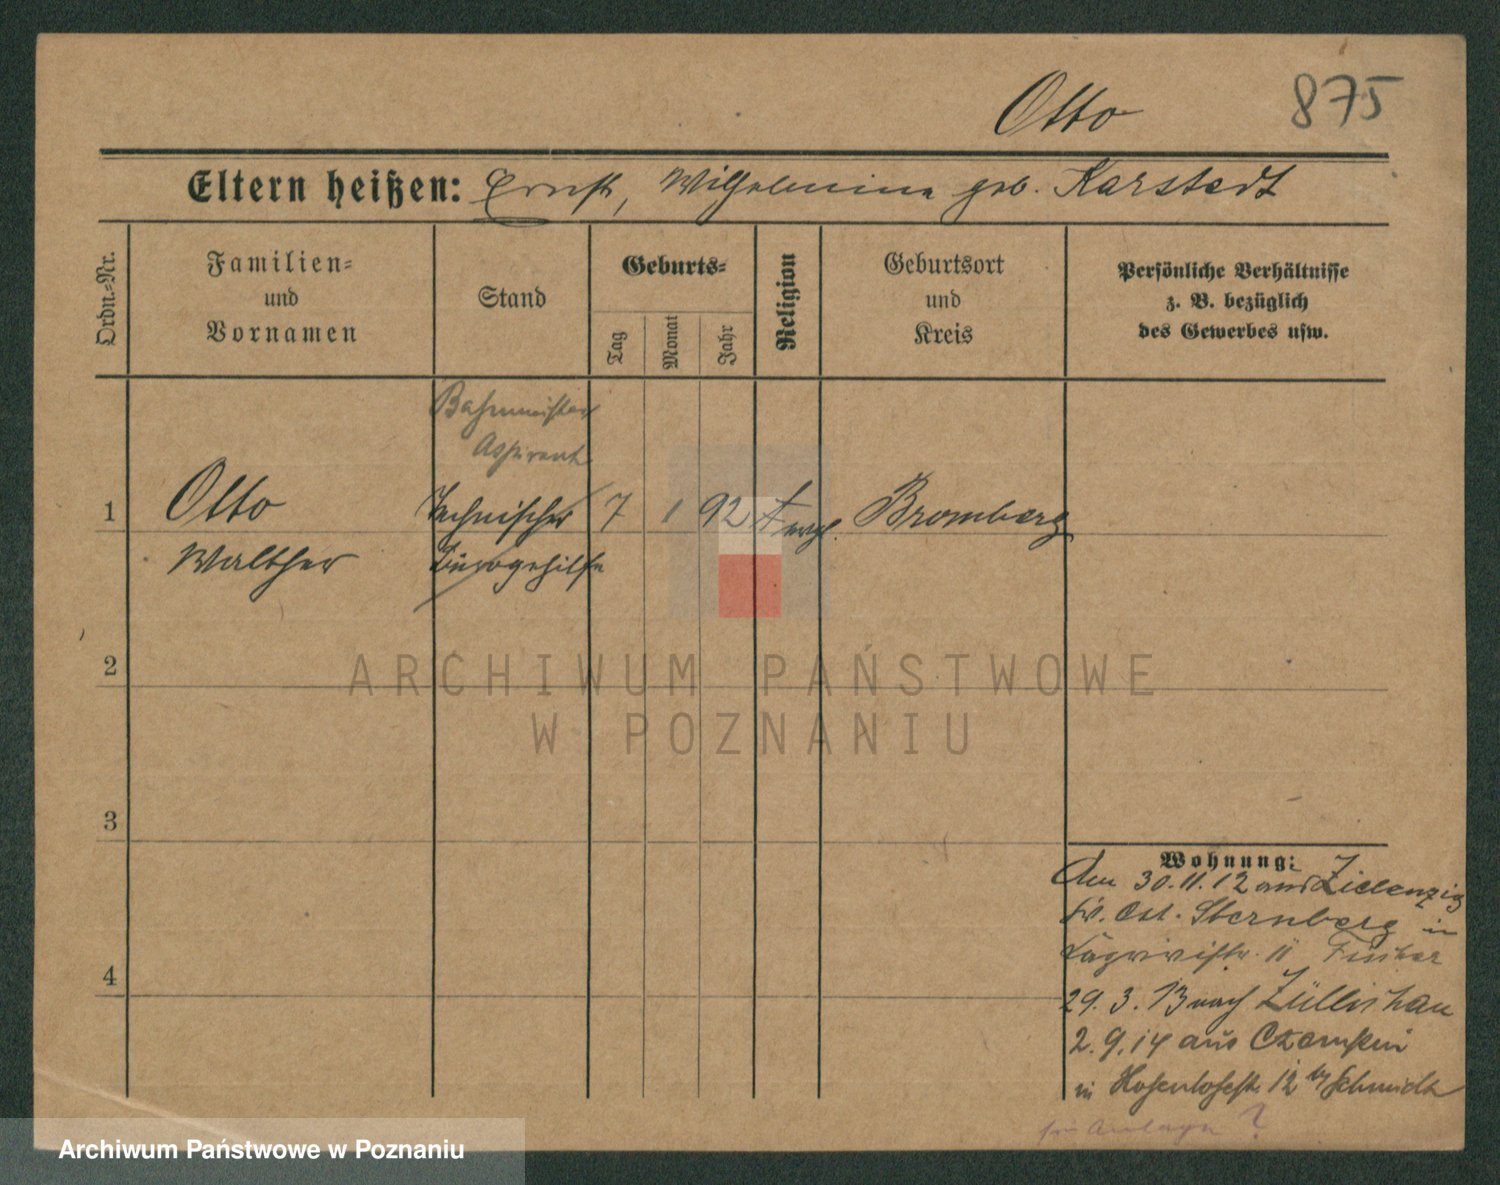 Otto 875
Eltern heißen: Ernst, Wilhelmine geb. Karstedt
Ordn.-Nr.
Familien-
und
Vornamen
Stand
Geburts-
Tag
Monat
Jahr
Religion
Geburtsort
und
Kreis
Persönliche Verhältnisse
z. B. bezüglich
des Gewerbes usw.
Bahnmeister
Aspirant
1 Otto Technischer 7 1 92 evgl. Bromberg
Walther Bürogehilfe
2
ARCHIWUM PAŃSTWOWE
W POZNANIU
3
Wohnung:
Am 30.11.12 aus Zielenzig
Kr. Ost-Sternberg in
11 Fischer
29. 3. 13 nach Züllichau
2. 9. 14 aus Czempin
in Hohenlohestr. 12 b/ Schmidt
4
Archiwum Państwowe w Poznaniu